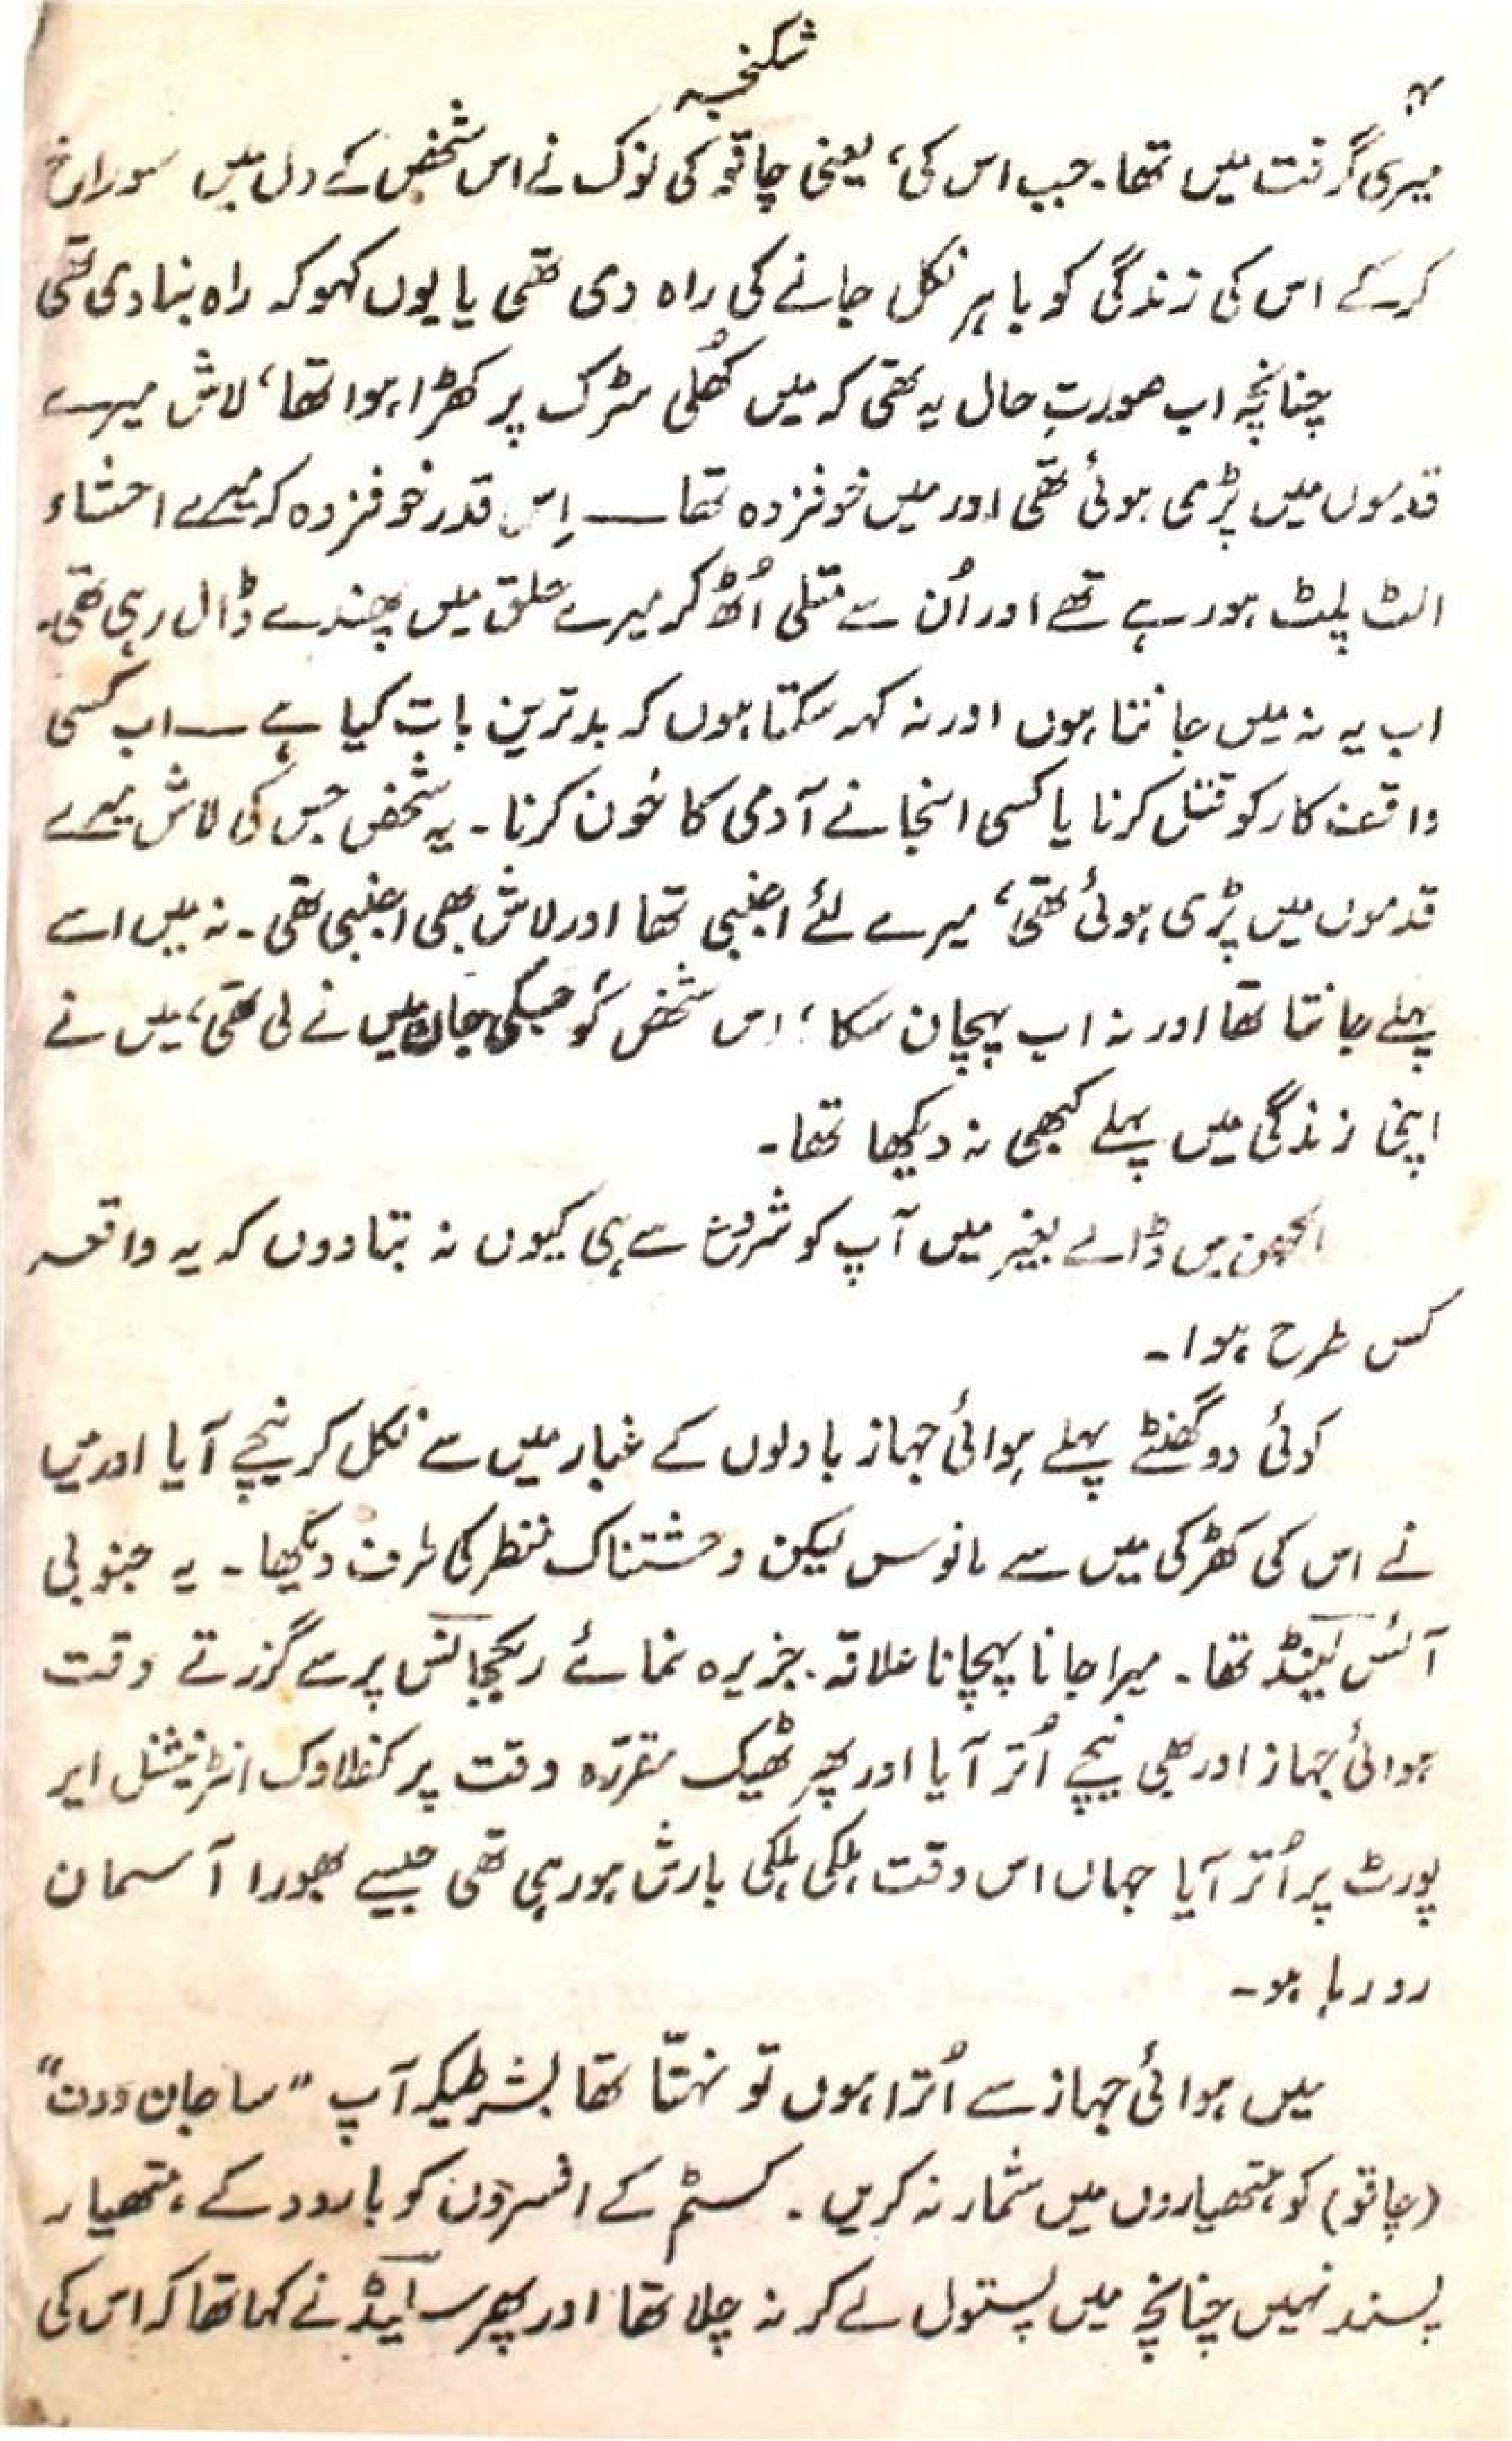 شکنجہ
۴
میری گرفت میں تھا۔ جب اس کی، یعنی چاقو کی نوک نے اس شخص کے دل میں سوراخ
کرکے اس کی زندگی کو باہر نکل جانے کی راہ دی تھی یا یوں کہو کہ راہ بنا دی تھی
چنانچہ اب صورتِ حال یہ تھی کہ میں کھُلی سڑک پر کھڑا ہوا تھا، لاش میرے
قدموں میں پڑی ہوئی تھی اور میں خوفزدہ تھا — اِس قدر خوفزدہ کہ میرے احشاء
الٹ پلٹ ہو رہے تھے اور اُن سے متلی اُٹھ کر میرے حلق میں پھندے ڈال رہی تھی۔
اب یہ نہ میں جانتا ہوں اور نہ کہہ سکتا ہوں کہ بدترین بات کیا ہے — اب کسی
واقف کار کو قتل کرنا یا کسی انجانے آدمی کا خون کرنا۔ یہ شخص جس کی لاش میرے
قدموں میں پڑی ہوئی تھی، میرے لئے اجنبی تھا اور لاش بھی اجنبی تھی۔ نہ میں اسے
پہلے جانتا تھا اور نہ اب پہچان سکا؛ اس شخص کو جسکی جان میں نے لی تھی، میں نے
اپنی زندگی میں پہلے کبھی نہ دیکھا تھا۔
الجھن میں ڈالے بغیر میں آپ کو شروع سے ہی کیوں نہ بتا دوں کہ یہ واقعہ
کس طرح ہوا۔
کوئی دو گھنٹے پہلے ہوائی جہاز بادلوں کے غبار میں سے نکل کر نیچے آیا اور میں
نے اس کی کھڑکی میں سے مانوس لیکن وحشتناک منظر کی طرف دیکھا۔ یہ جنوبی
آئس لینڈ تھا۔ میرا جانا پہچانا علاقہ۔ جزیرہ نمائے ریکجانس پر سے گزرتے وقت
ہوائی جہاز اور بھی نیچے اُتر آیا اور پھر ٹھیک مقررّہ وقت پر کفلاوک انٹرنیشنل ایر
پورٹ پر اُتر آیا جہاں اس وقت ہلکی ہلکی بارش ہو رہی تھی جیسے بھورا آسمان
رو رہا ہو۔
میں ہوائی جہاز سے اُترا ہوں تو نہتّا تھا بشرطیکہ آپ "ساجان ودن"
(چاقو) کو ہتھیاروں میں شمار نہ کریں۔ کسٹم کے افسروں کو بارود کے ہتھیار
پسند نہیں چنانچہ میں پستول لے کر نہ چلا تھا اور پھر سلیڈ نے کہا تھا کہ اس کی